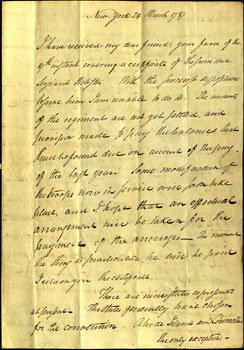 New York 24 March 1787
I have received my dear friend, your favor of the
9th instant covering a certificate of the sum due
Serjeant With the present
before him I am unable to do it. The accounts
of the regiment are not yet settled and
provision made to pay the balances that
may be found due on account of the pay
of the last year. Some
the troops now in service will soon take
place, and I hope that an effectual
arrangement will be taken for the
payment of the arrearages. The moment
the thing is practicable he will be paid
I return you the certificate.
There are nine states represented
at present. The states generally have chosen
for the convention Rhode Island and Connecticut
the only exceptions.